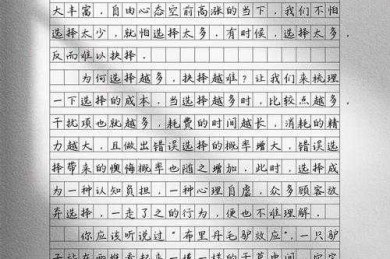 大丰富，自由心态空前高涨的当下，我们不怕
选择太少，就怕选择太多，有时候，选择太多，
反而难以抉择。
为何选择越多，抉择越难？让我们来梳理
一下选择的成本，当选择越多时，比较点越多，
干扰项也就越多，耗费的时间越长，消耗的精
力越大，且做出错误选择的概率增大，错误选
择带来的懊悔概率也随之增加，此时，选择成
为一种认知负担，一种心理自虐，众多顾客放
弃选择，一走了之的行为，便也不难理解。
你应该听说过“布里丹毛驴效应”，一只驴